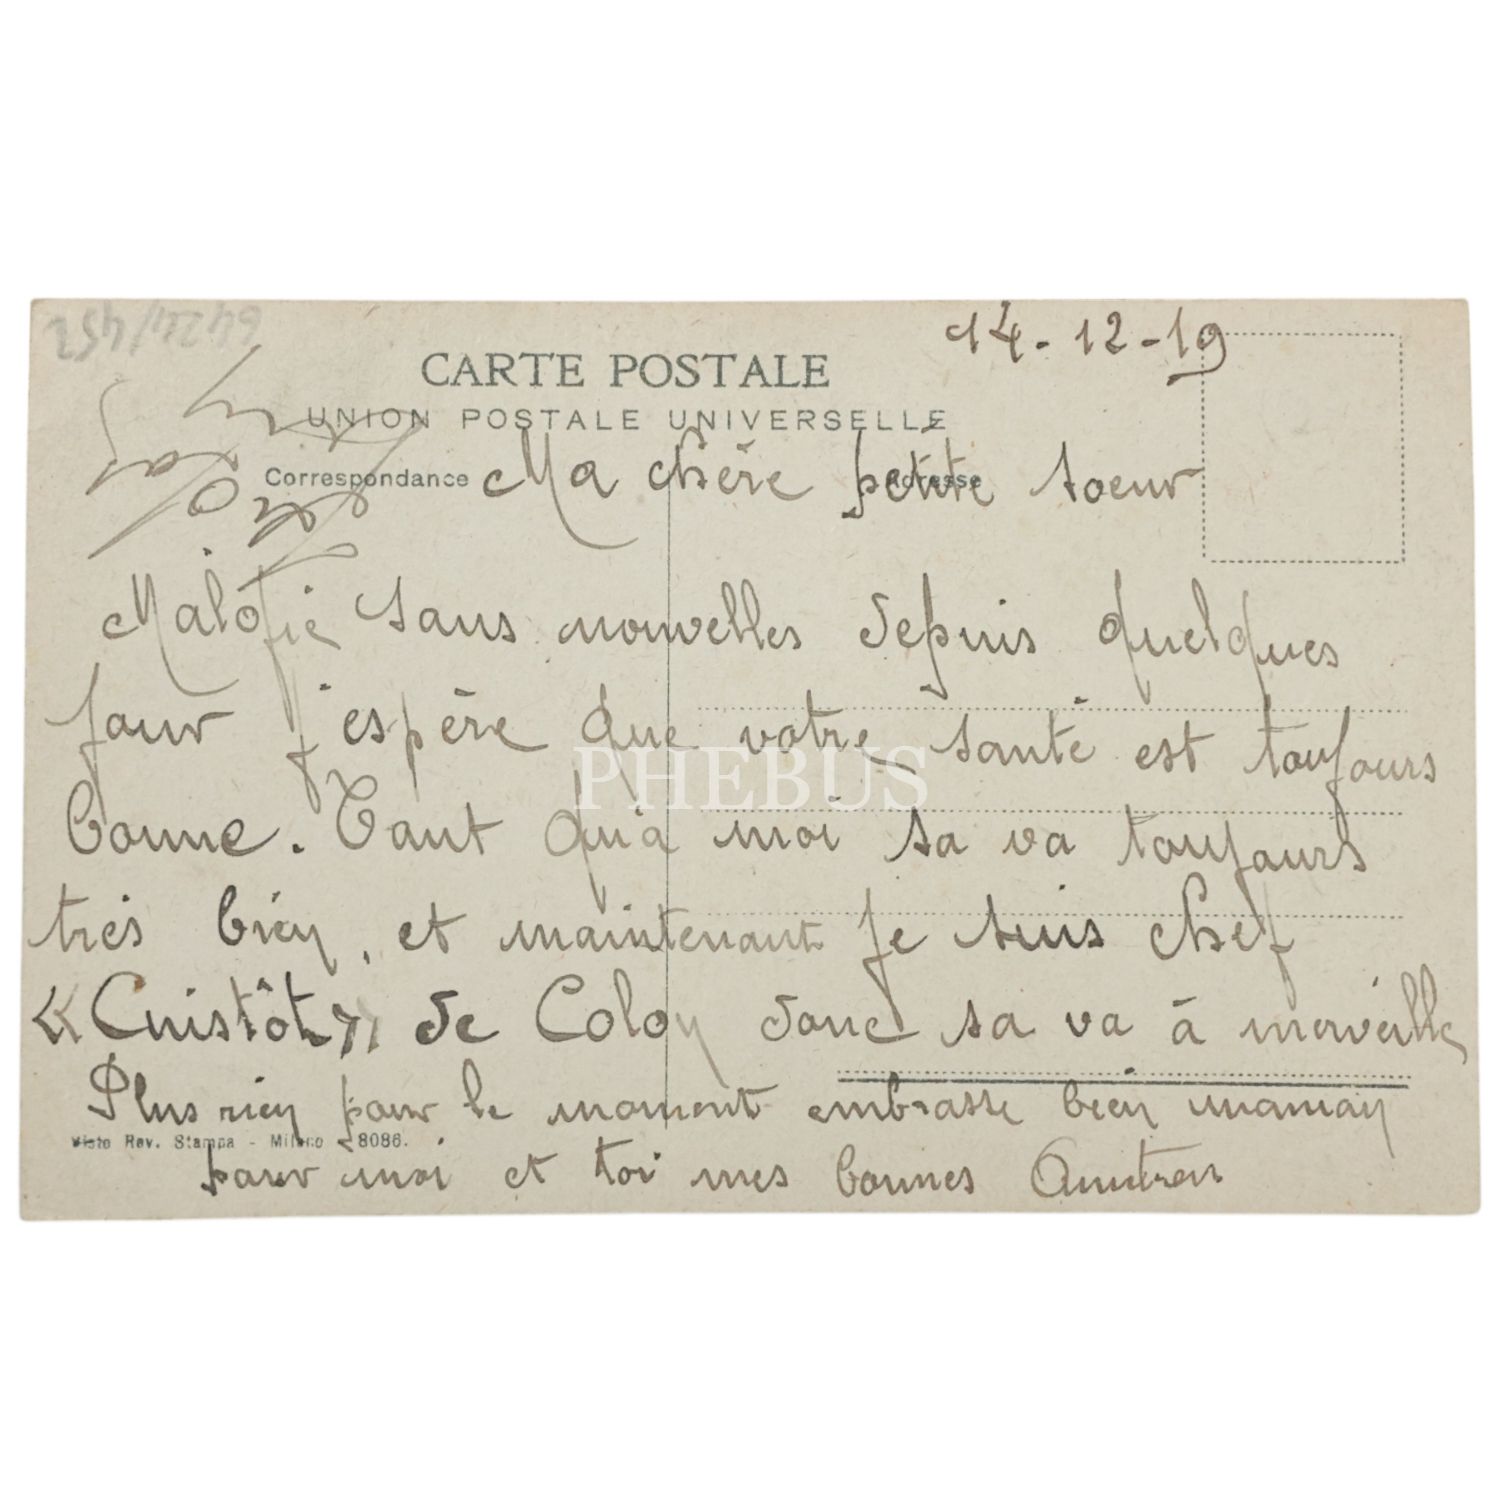 14-12-19
CARTE POSTALE
UNION POSTALE UNIVERSELLE
Correspondance
Adresse
Ma chère petite soeur
sans nouvelles depuis quelques
jour j'espère que votre santé est toujours
bonne. Tant qu'à moi sa va toujours
très bien, et maintenant je suis chef
« Cuistôt » de donc sa va à merveille
Plus rien pour le moment embrasse bien maman
Visto Rev. Stampa - Milano 8086.
pour moi et toi mes bonnes
PHEBUS